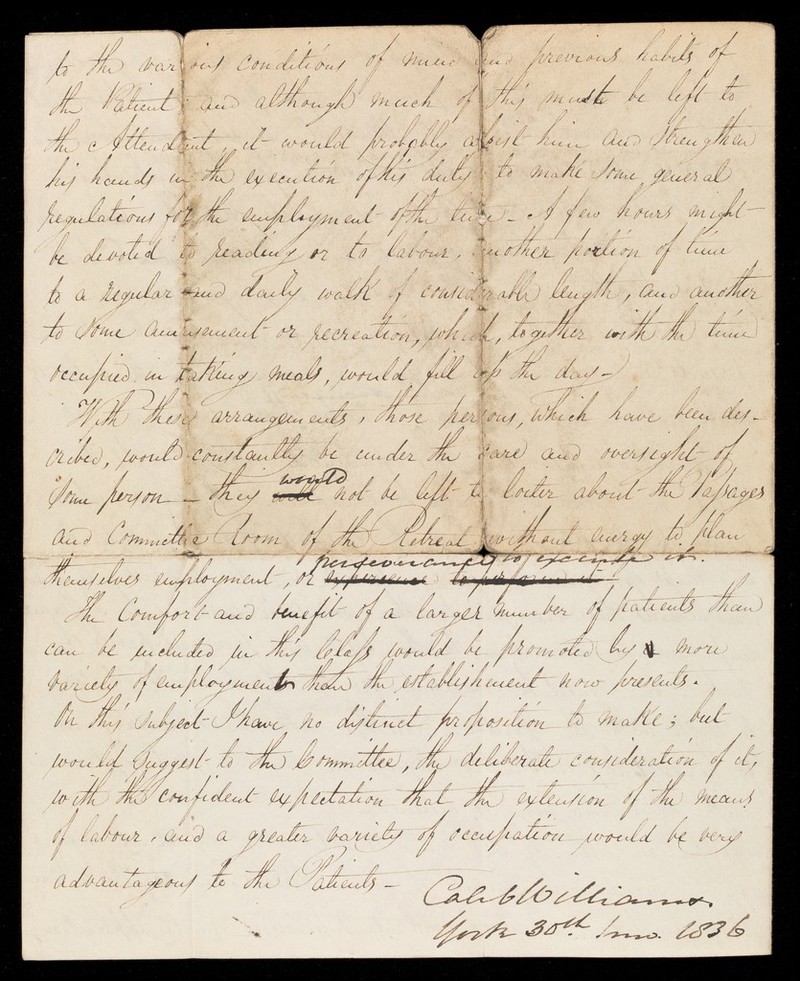 to the various conditions of mind and previous habits of
the Patient and although much of this must be left to
the Attendant, it would probably assist him and strengthen
his hands in the execution of his duty to make some general
regulations for the employment of the time - A few hours might
be devoted to reading or to labour, another portion of time
to a regular and daily walk of considerable length, and another
to some amusement or recreation, which, together with the time
occupied in taking meals, would fill up the day -
With these arrangements, those persons, which have been des-
cribed, would constantly be under the care and oversight of
some person - they would not be left to loiter about the Passages
and Committee Room of the Retreat without energy to plan
themselves employment, or perseverance to execute it.
The Comfort and benefit of a larger number of patients than
can be included in this Class would be promoted by a more
variety of employment than the establishment now presents.
On this subject I have no distinct proposition to make; but
would suggest to the Committee, the deliberate consideration of it,
with the confident expectation that the extension of the means
of labour, and a greater variety of occupation would be very
advantageous to the Patients -
Caleb Williams.
York 30th 1mo. 1836